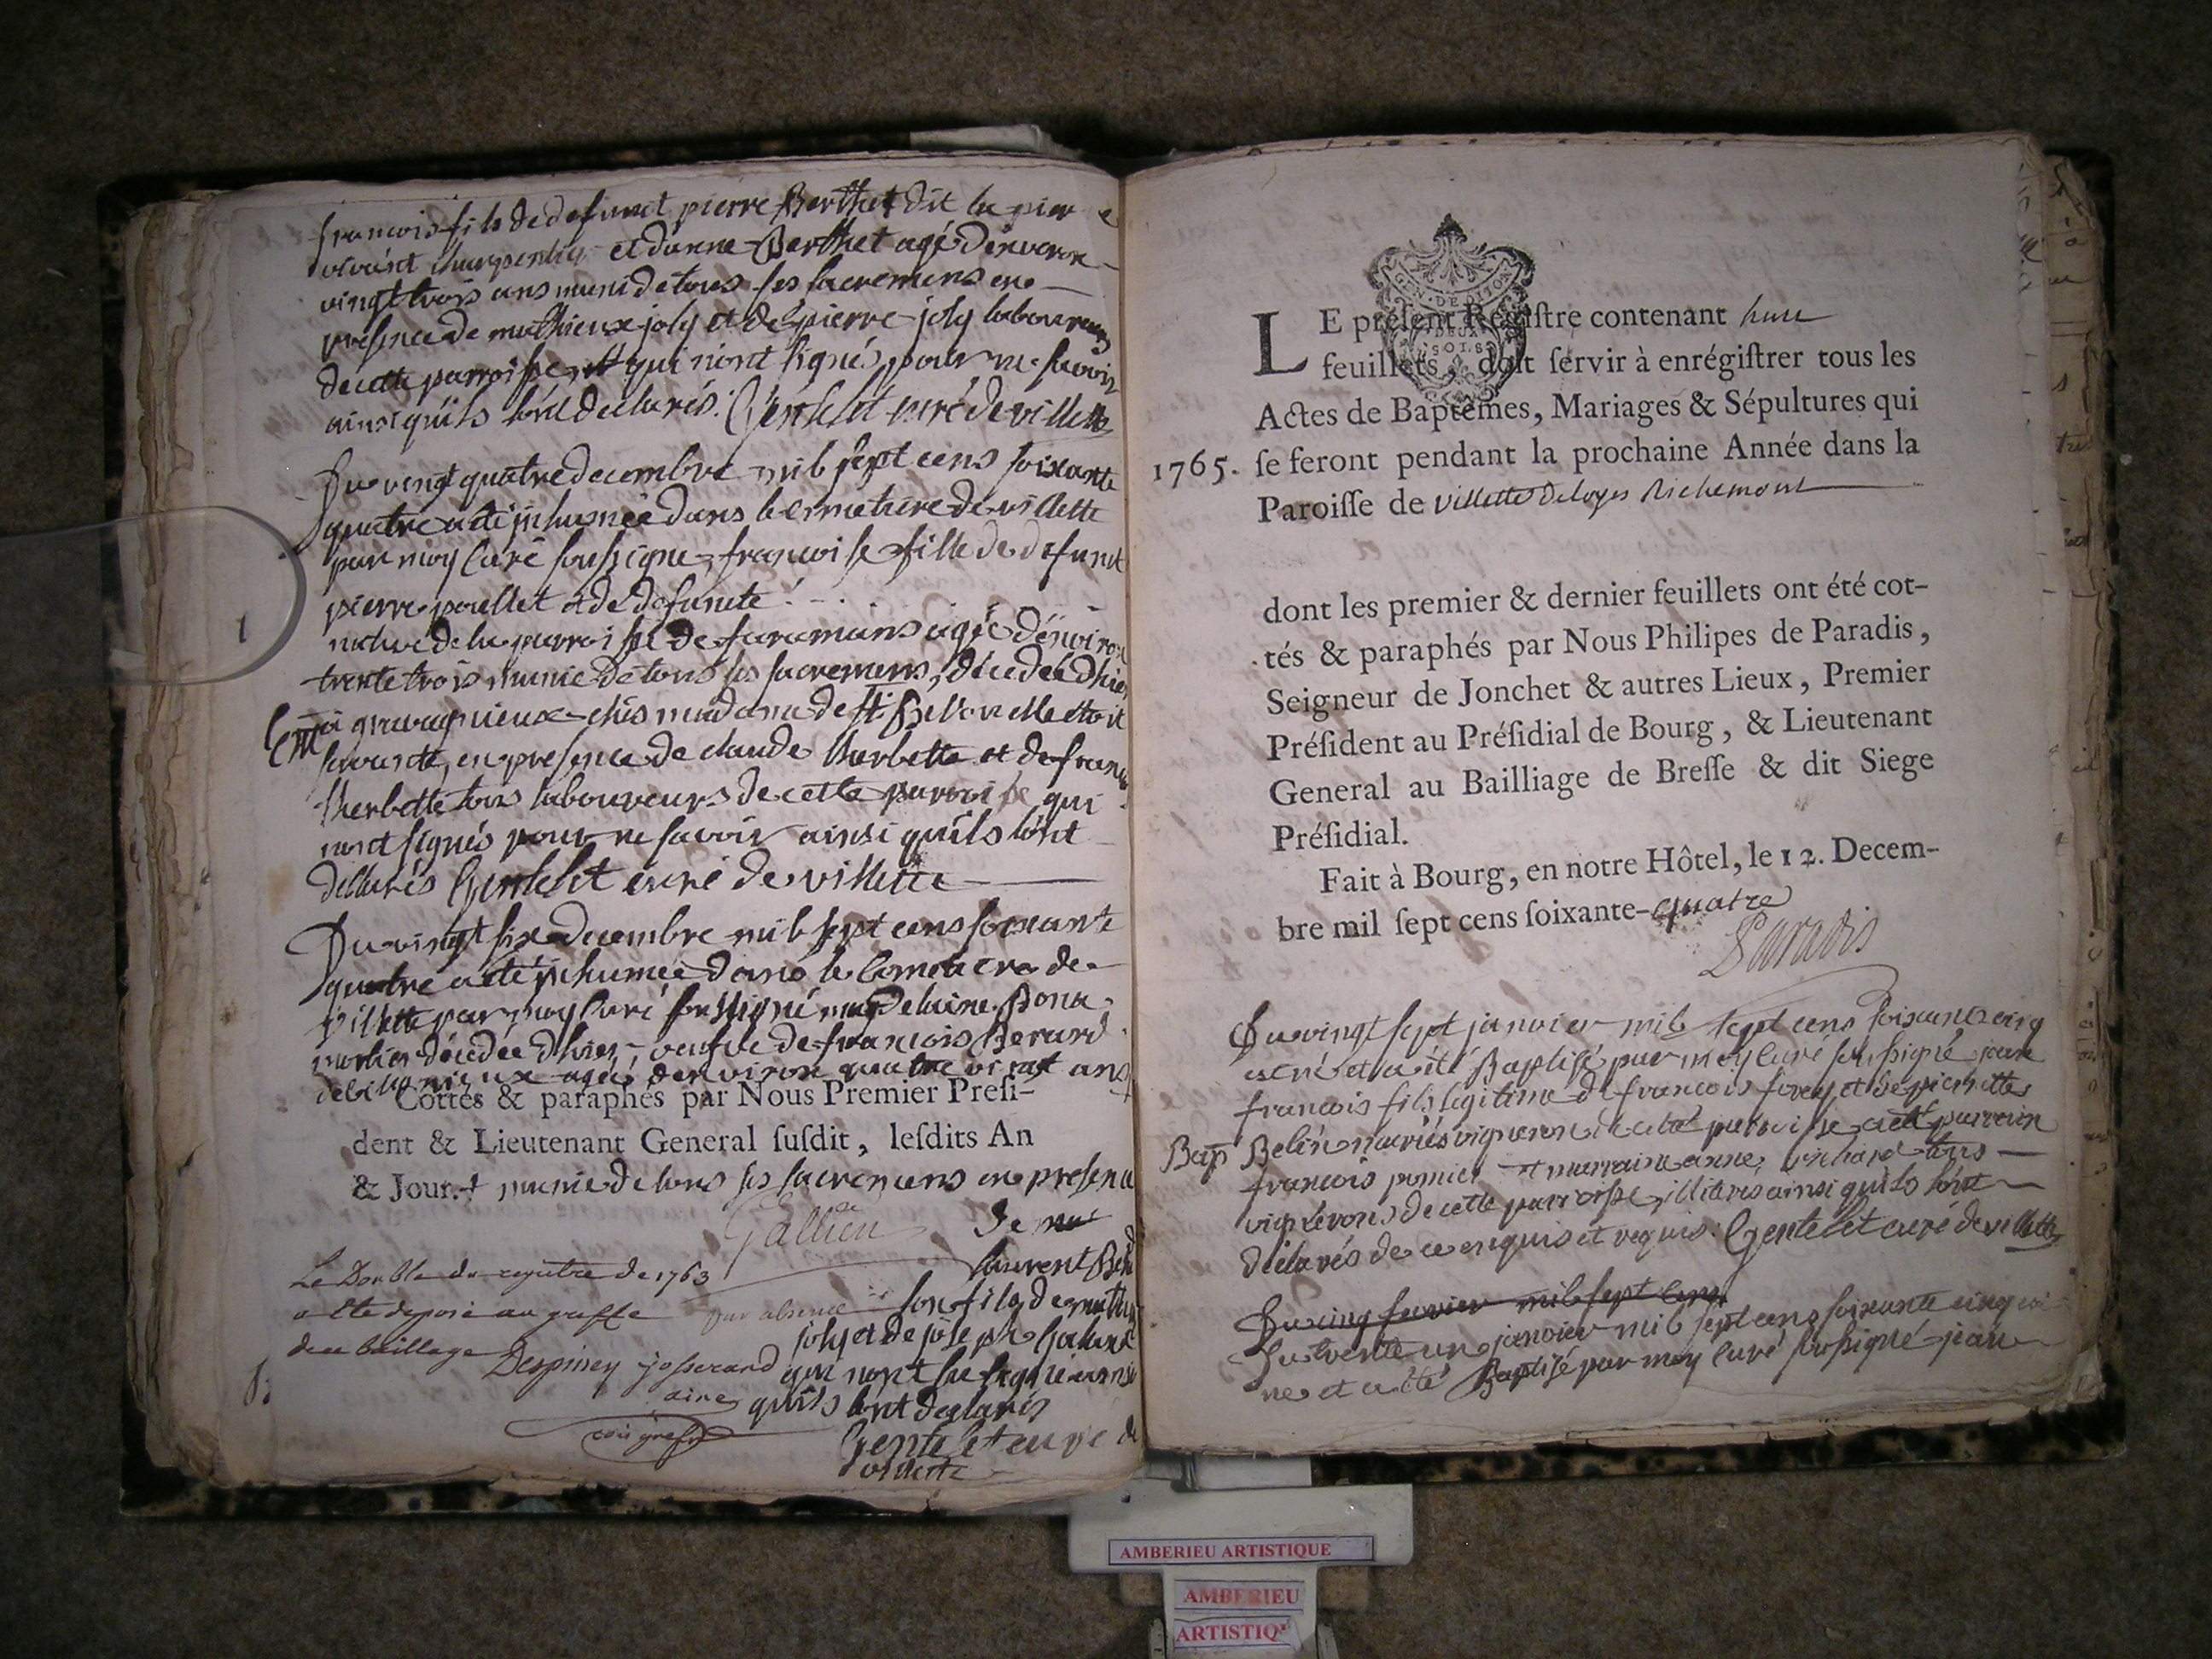 francois fils de defunct pierre Berthet dit la pier e
vivant charpentier et d'anne Berthet agé d'environ
vingt trois ans muni de tous ses sacremens en
presence de mathieux joly et de pierre joly laboureurs
de cette parroisse et qui n'ont signés pour ne savoir
ainsi qu'ils l'ont declarés. Gentelet curé de villette
Du vingt quatre decembre mil sept cens soixante
quatre a été inhumée dans le cimetiere de villette
par moy curé soussigné, francoise fille de defunct
pierre poullet et de defuncte
native de la parroisse de faramans agée d'environ
trente trois munie de tous ses sacremens, décedée d'hier
a gravagnieux chés madame de st
servante, en presence de claude therbette et de
therbette tous laboureurs de cette parroisse qui
n'ont signés pour ne savoir ainsi qu'ils l'ont
déclarés Gentelet curé de villette
Du vingt six decembre mil sept cens soixante
quatre a été inhumée dans le cimetiere de
villette par moy curé soussigné magdelaine Bona
décedée d'hier, veufve de francois Berard
agée d'environ quatre vingt ans
Cottés & paraphés par Nous Premier Presi-
dent & Lieutenant General susdit, lesdits An
& Jour. + munie de tous ses sacremens en presence
Gallien de
laurent
Le Double du registre de 1763
son fils de
a été deposé au greffe par absence
joly et de joseph
du bailliage
Despiney josserand qui n'ont sû signé ainsi
aine qu'ils l'ont déclarés
Gentelet curé de
villette
LE présent Régistre contenant
feuillets, doit servir à enrégistrer tous les
Actes de Baptêmes, Mariages & Sépultures qui
1765. se feront pendant la prochaine Année dans la
Paroisse de Villette Deloyes Richemont
GEN. DE DIJON
DEUX
SOLS
dont les premier & dernier feuillets ont été cot-
tés & paraphés par Nous Philipes de Paradis,
Seigneur de Jonchet & autres Lieux, Premier
Président au Présidial de Bourg, & Lieutenant
General au Bailliage de Bresse & dit Siege
Présidial.
Fait à Bourg, en notre Hôtel, le 12. Decem-
bre mil sept cens soixante-quatre
Paradis
Du vingt sept janvier mil sept cens soixante cinq
est né et a été Baptisé par moy curé soussigné jean
francois fils legitime de francois et de pierrette
Bap Belin mariés vignerons de cette parroisse a été parrain
francois pomier et marraine anne tous
vignerons de cette parroisse, illiterés ainsi qu'ils l'ont
déclarés de ce enquis et requis. Gentelet curé de villette
Du cinq fevrier mil sept cens
Du trente un janvier mil sept cens soixante cinq
né et a été Baptisé par moy curé soussigné jean
AMBERIEU ARTISTIQUE
AMBERIEU
ARTISTIQ